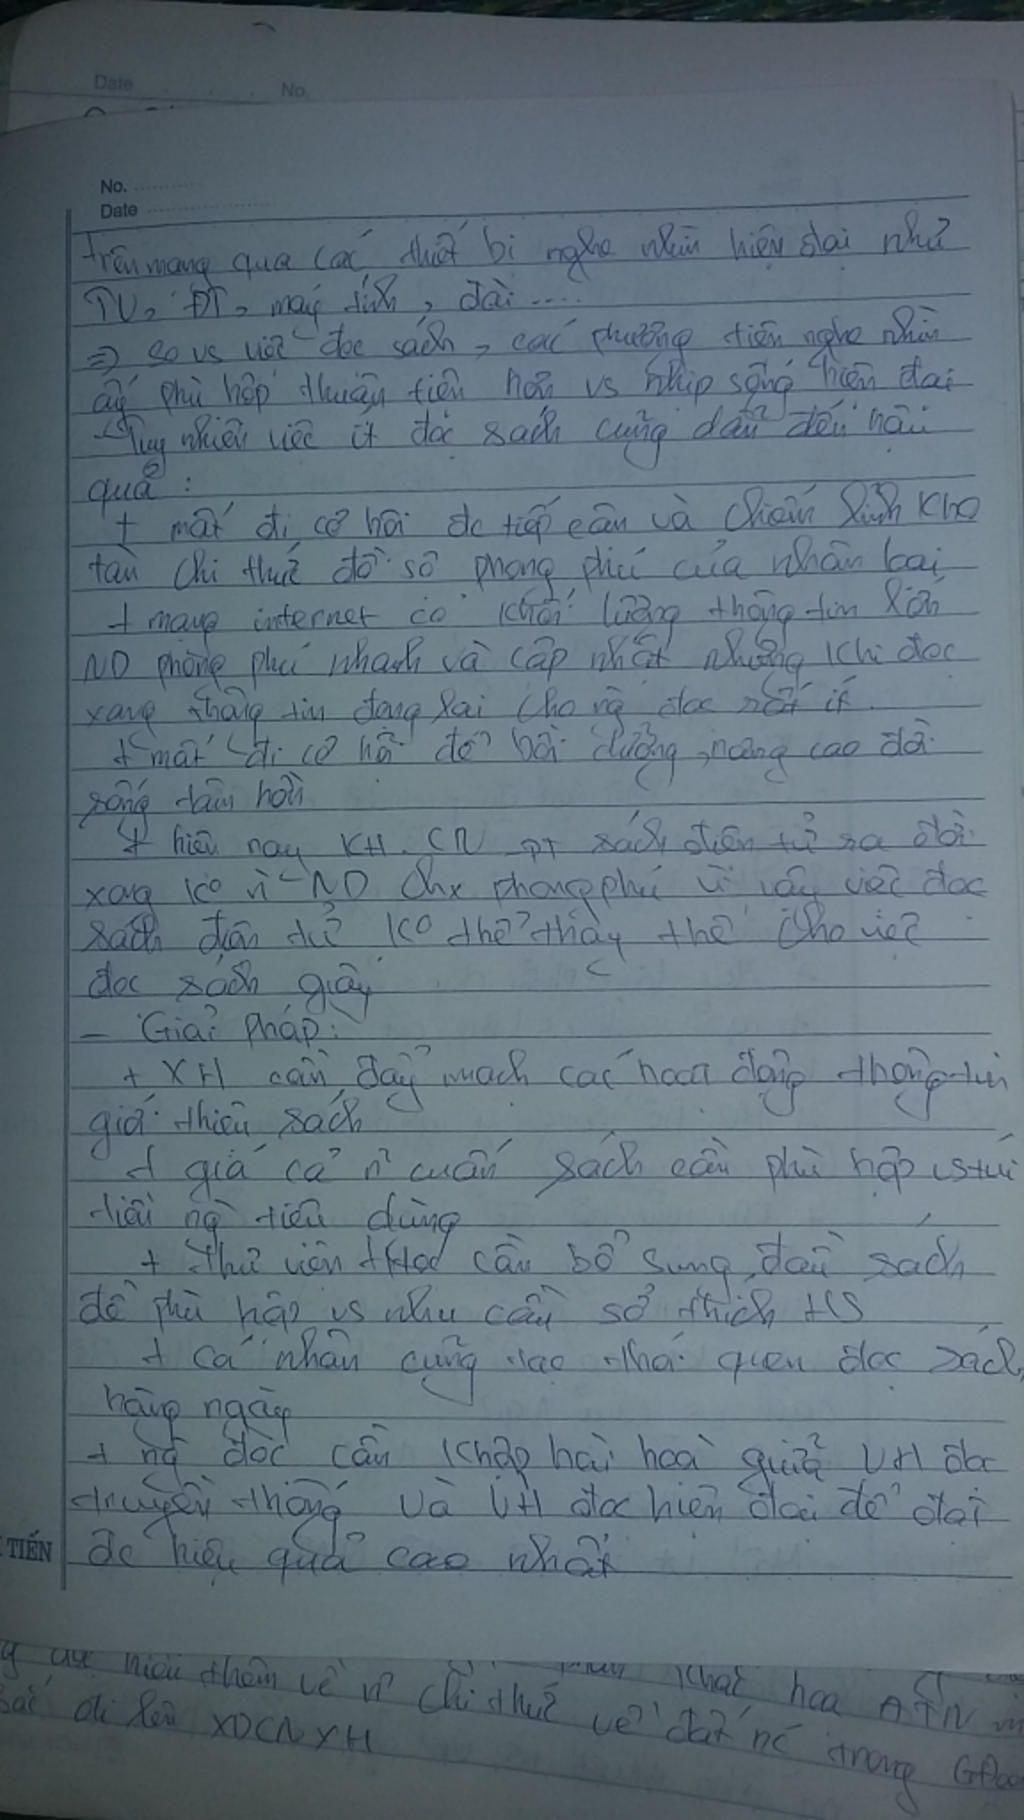 Date No.
No.
Date
trên mạng qua các thiết bị nghe nhìn hiện đại như
TV, ĐT, máy tính, đài ....
=> so vs việc đọc sách, các phương tiện nghe nhìn
ấy phù hợp thuận tiện hơn vs nhịp sống hiện đại
- Tuy nhiên việc ít đọc sách cũng dẫn đến hậu
quả :
+ mất đi cơ hội đc tiếp cận và chiếm lĩnh kho
tàn chi thức đồ sộ phong phú của nhân loại
+ mạng internet có khối lượng thông tin lớn
ND phong phú nhanh và cập nhật nhưng khi đọc
xong thông tin đọng lại cho ng đọc rất ít
+ mất đi cơ hội để bồi dưỡng, nâng cao đời
sống tâm hồn
+ hiện nay KH. CN PT sách điện tử ra đời
xong ko vì ND chx phong phú vì vậy việc đọc
sách điện tử ko thể thay thế cho việc
đọc sách giấy
- Giải pháp :
+ XH cần đẩy mạch các hoạt động thông tin
giới thiệu sách
+ giá cả n cuốn sách cần phù hợp vs túi
tiền ng tiêu dùng
+ Thư viện tHọc cần bổ sung đầu sách
để phù hợp vs nhu cầu sở thích HS
+ Cá nhân cũng tạo thói quen đọc sách
hàng ngày
+ ng đọc cần kết hợp hài hoà giữa VH đọc
truyền thống và VH đọc hiện đại để đạt
TIẾN đc hiệu quả cao nhất
hiểu thêm về n chi thức về đất nc trong
đi lên XDCNXH